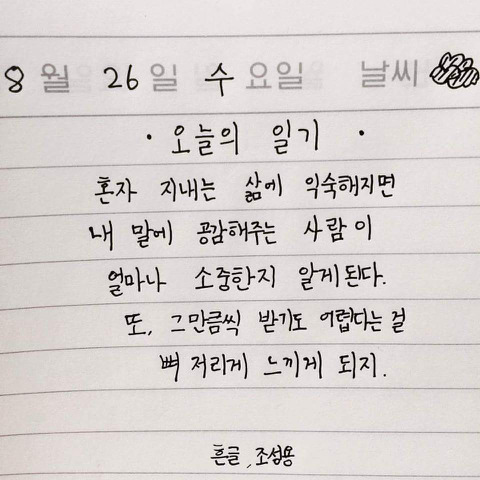 8월 26일 수요일 날씨
· 오늘의 일기 ·
혼자 지내는 삶에 익숙해지면
내 말에 공감해주는 사람이
얼마나 소중한지 알게된다.
또, 그만큼씩 받기도 어렵다는 걸
뼈 저리게 느끼게 되지.
흔글, 조성용